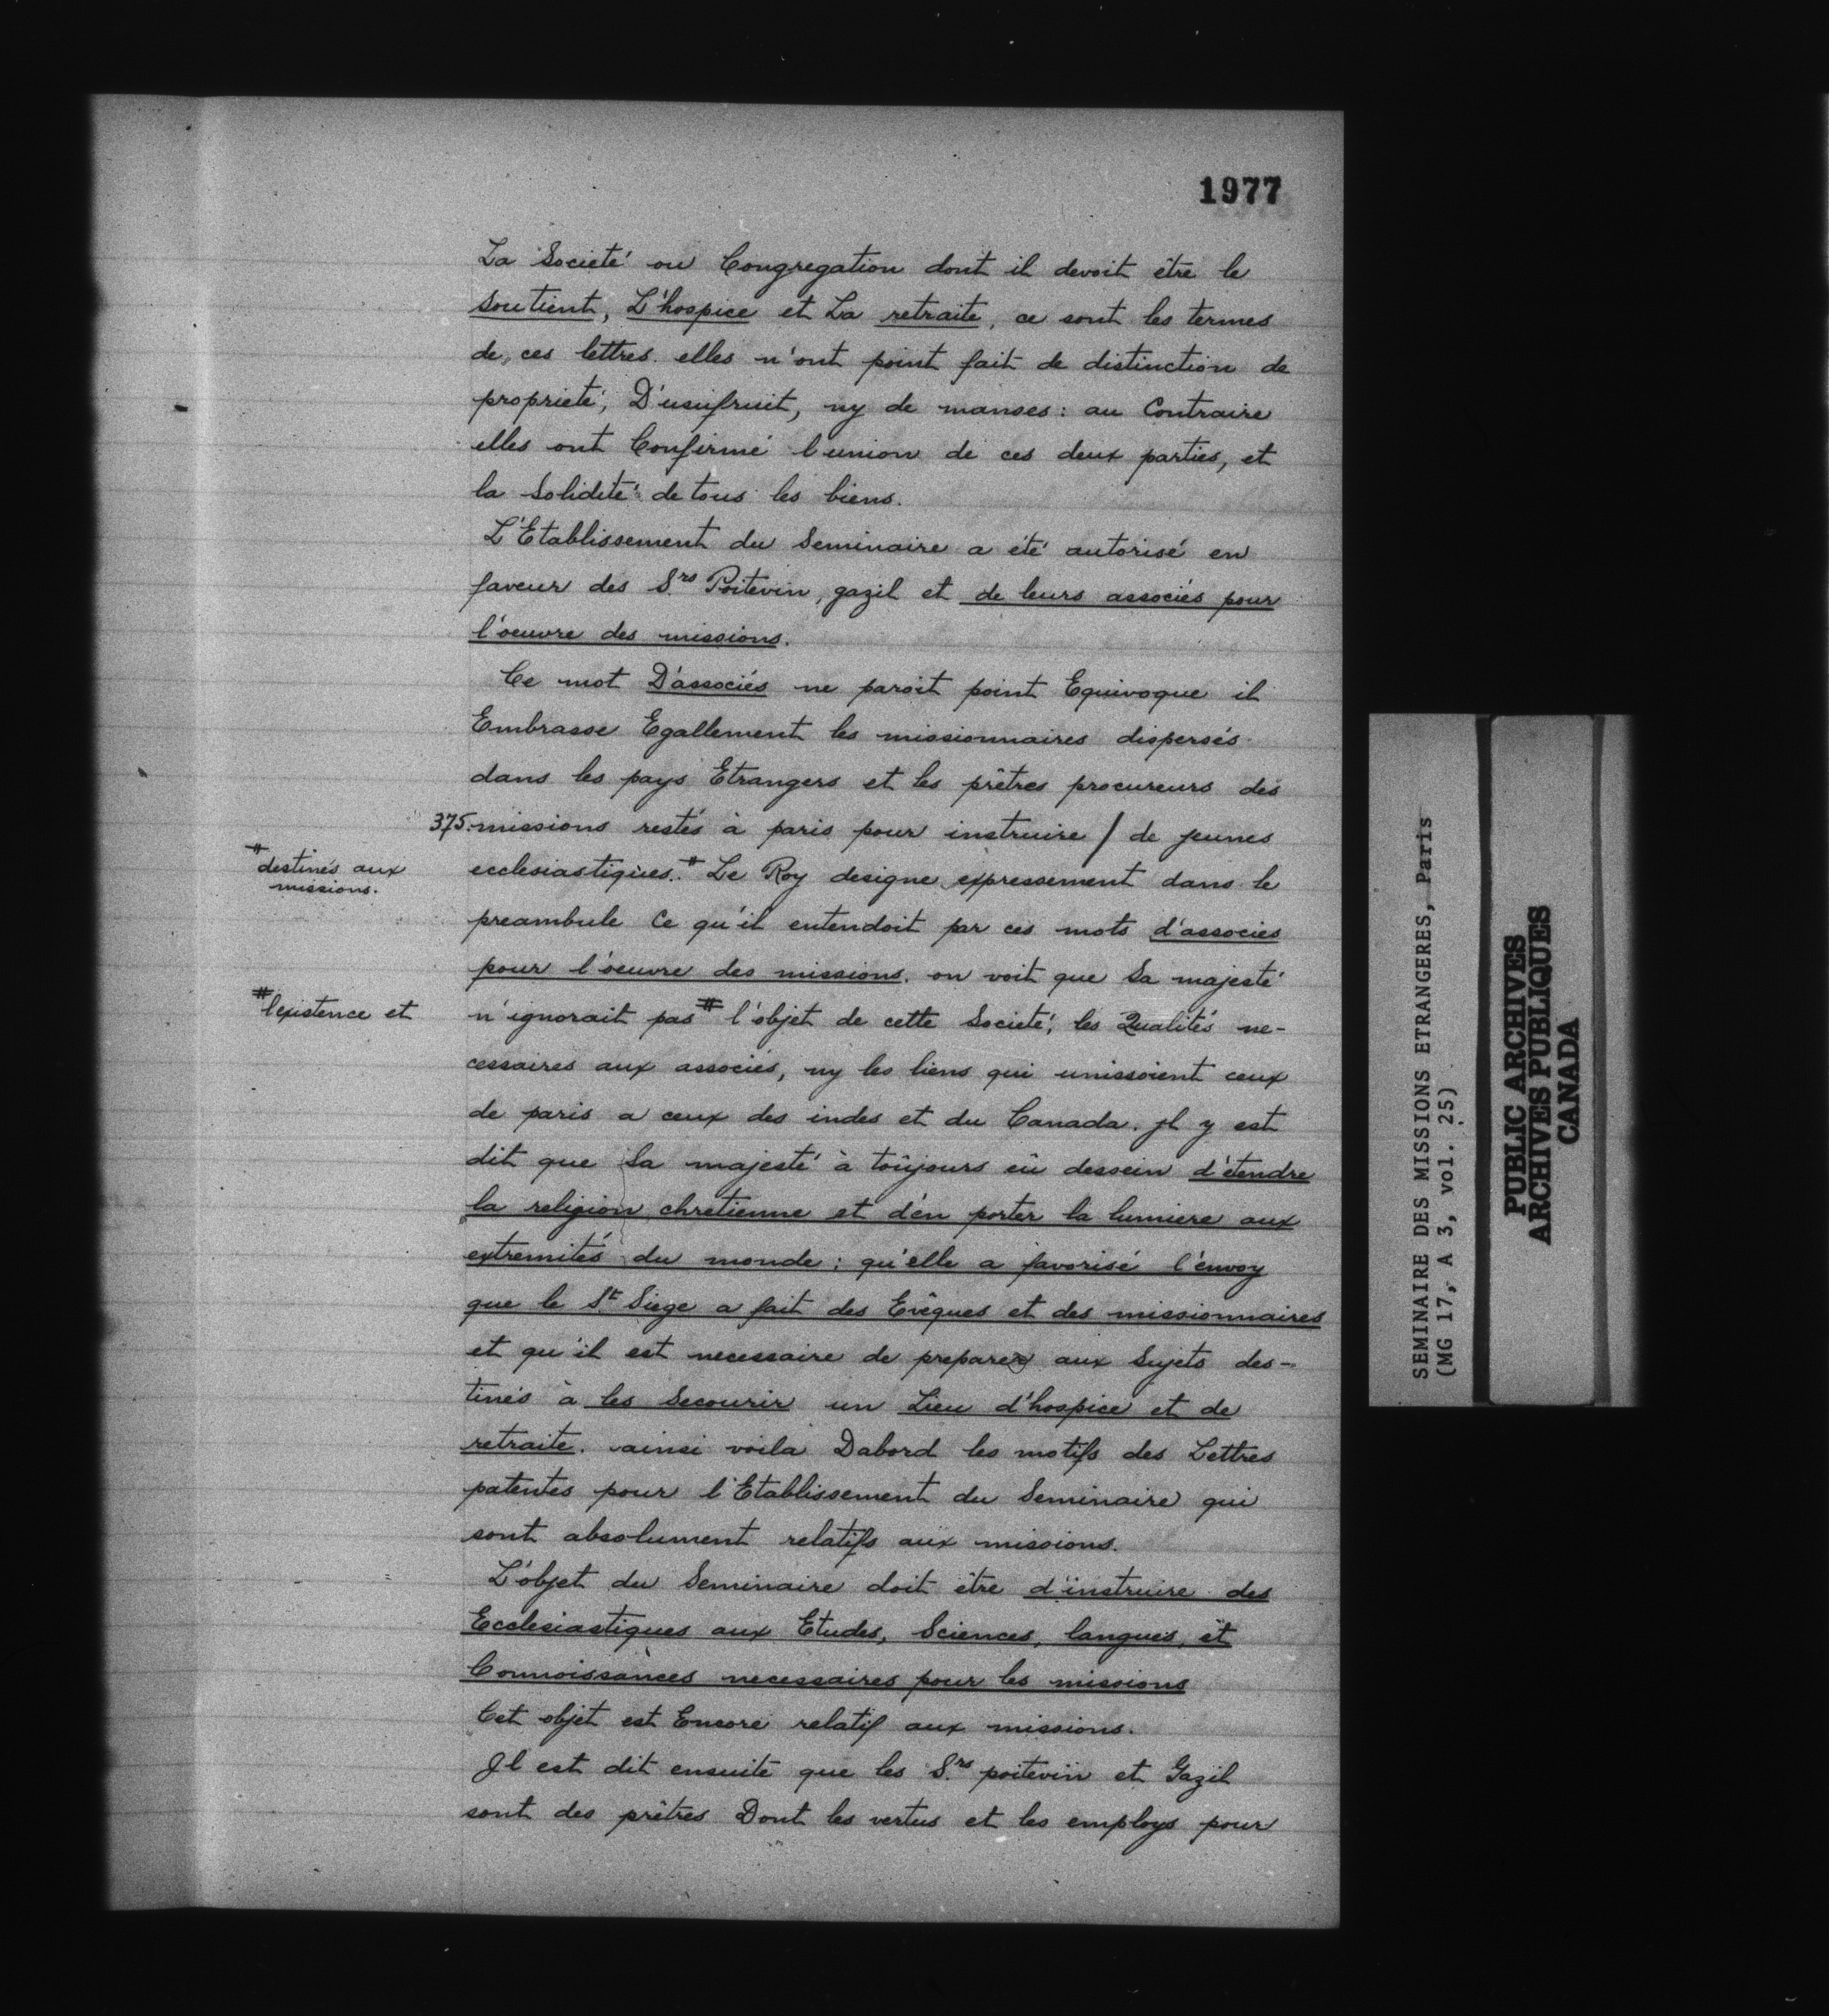 1977
La Societé ou Congregation dont il devoit être le
soutient, L'hospice et La retraite, ce sont les termes
de ces lettres. elles n'ont point fait de distinction de
proprieté, D'usufruit, ny de manses: au Contraire
elles ont Confirmé l'union de ces deux parties, et
la Solidité de tous les biens.
L'Etablissement du Seminaire a été autorisé en
faveur des Srs Poitevin, gazil et de leurs associés pour
l'oeuvre des missions.
Ce mot D'associés ne paroit point Equivoque il
Embrasse Egallement les missionnaires dispersés
dans les pays Etrangers et les prêtres procureurs des
375. missions restés à paris pour instruire / de jeunes
# destinés aux
missions.
ecclesiastiques.# Le Roy designe expressement dans le
preambule Ce qu'il entendoit par ces mots d'associés
pour l'oeuvre des missions. on voit que Sa majesté
# l'existence et
n'ignorait pas # l'objet de cette Societé, les Qualités ne-
cessaires aux associés, ny les liens qui unissoient ceux
de paris a ceux des indes et du Canada. Jl y est
dit que Sa majesté à toûjours eû dessein d'étendre
la religion chretienne et d'en porter la lumiere aux
extremités du monde: qu'elle a favorisé l'envoy
que le St Siege a fait des Evêques et des missionnaires
et qu'il est necessaire de preparer aux Sujets des-
tinés à les Secourir un Lieu d'hospice et de
retraite. ainsi voila Dabord les motifs des Lettres
patentes pour l'Etablissement du Seminaire qui
sont absolument relatifs aux missions.
L'objet du Seminaire doit être d'instruire des
Ecclesiastiques aux Etudes, Sciences, langues, et
Connoissances necessaires pour les missions
Cet objet est Encore relatif aux missions.
Jl est dit ensuite que les Srs poitevin et Gazil
sont des prêtres Dont les vertus et les employs pour
SEMINAIRE DES MISSIONS ETRANGERES, Paris
(MG 17, A 3, vol. 25)
PUBLIC ARCHIVES
ARCHIVES PUBLIQUES
CANADA